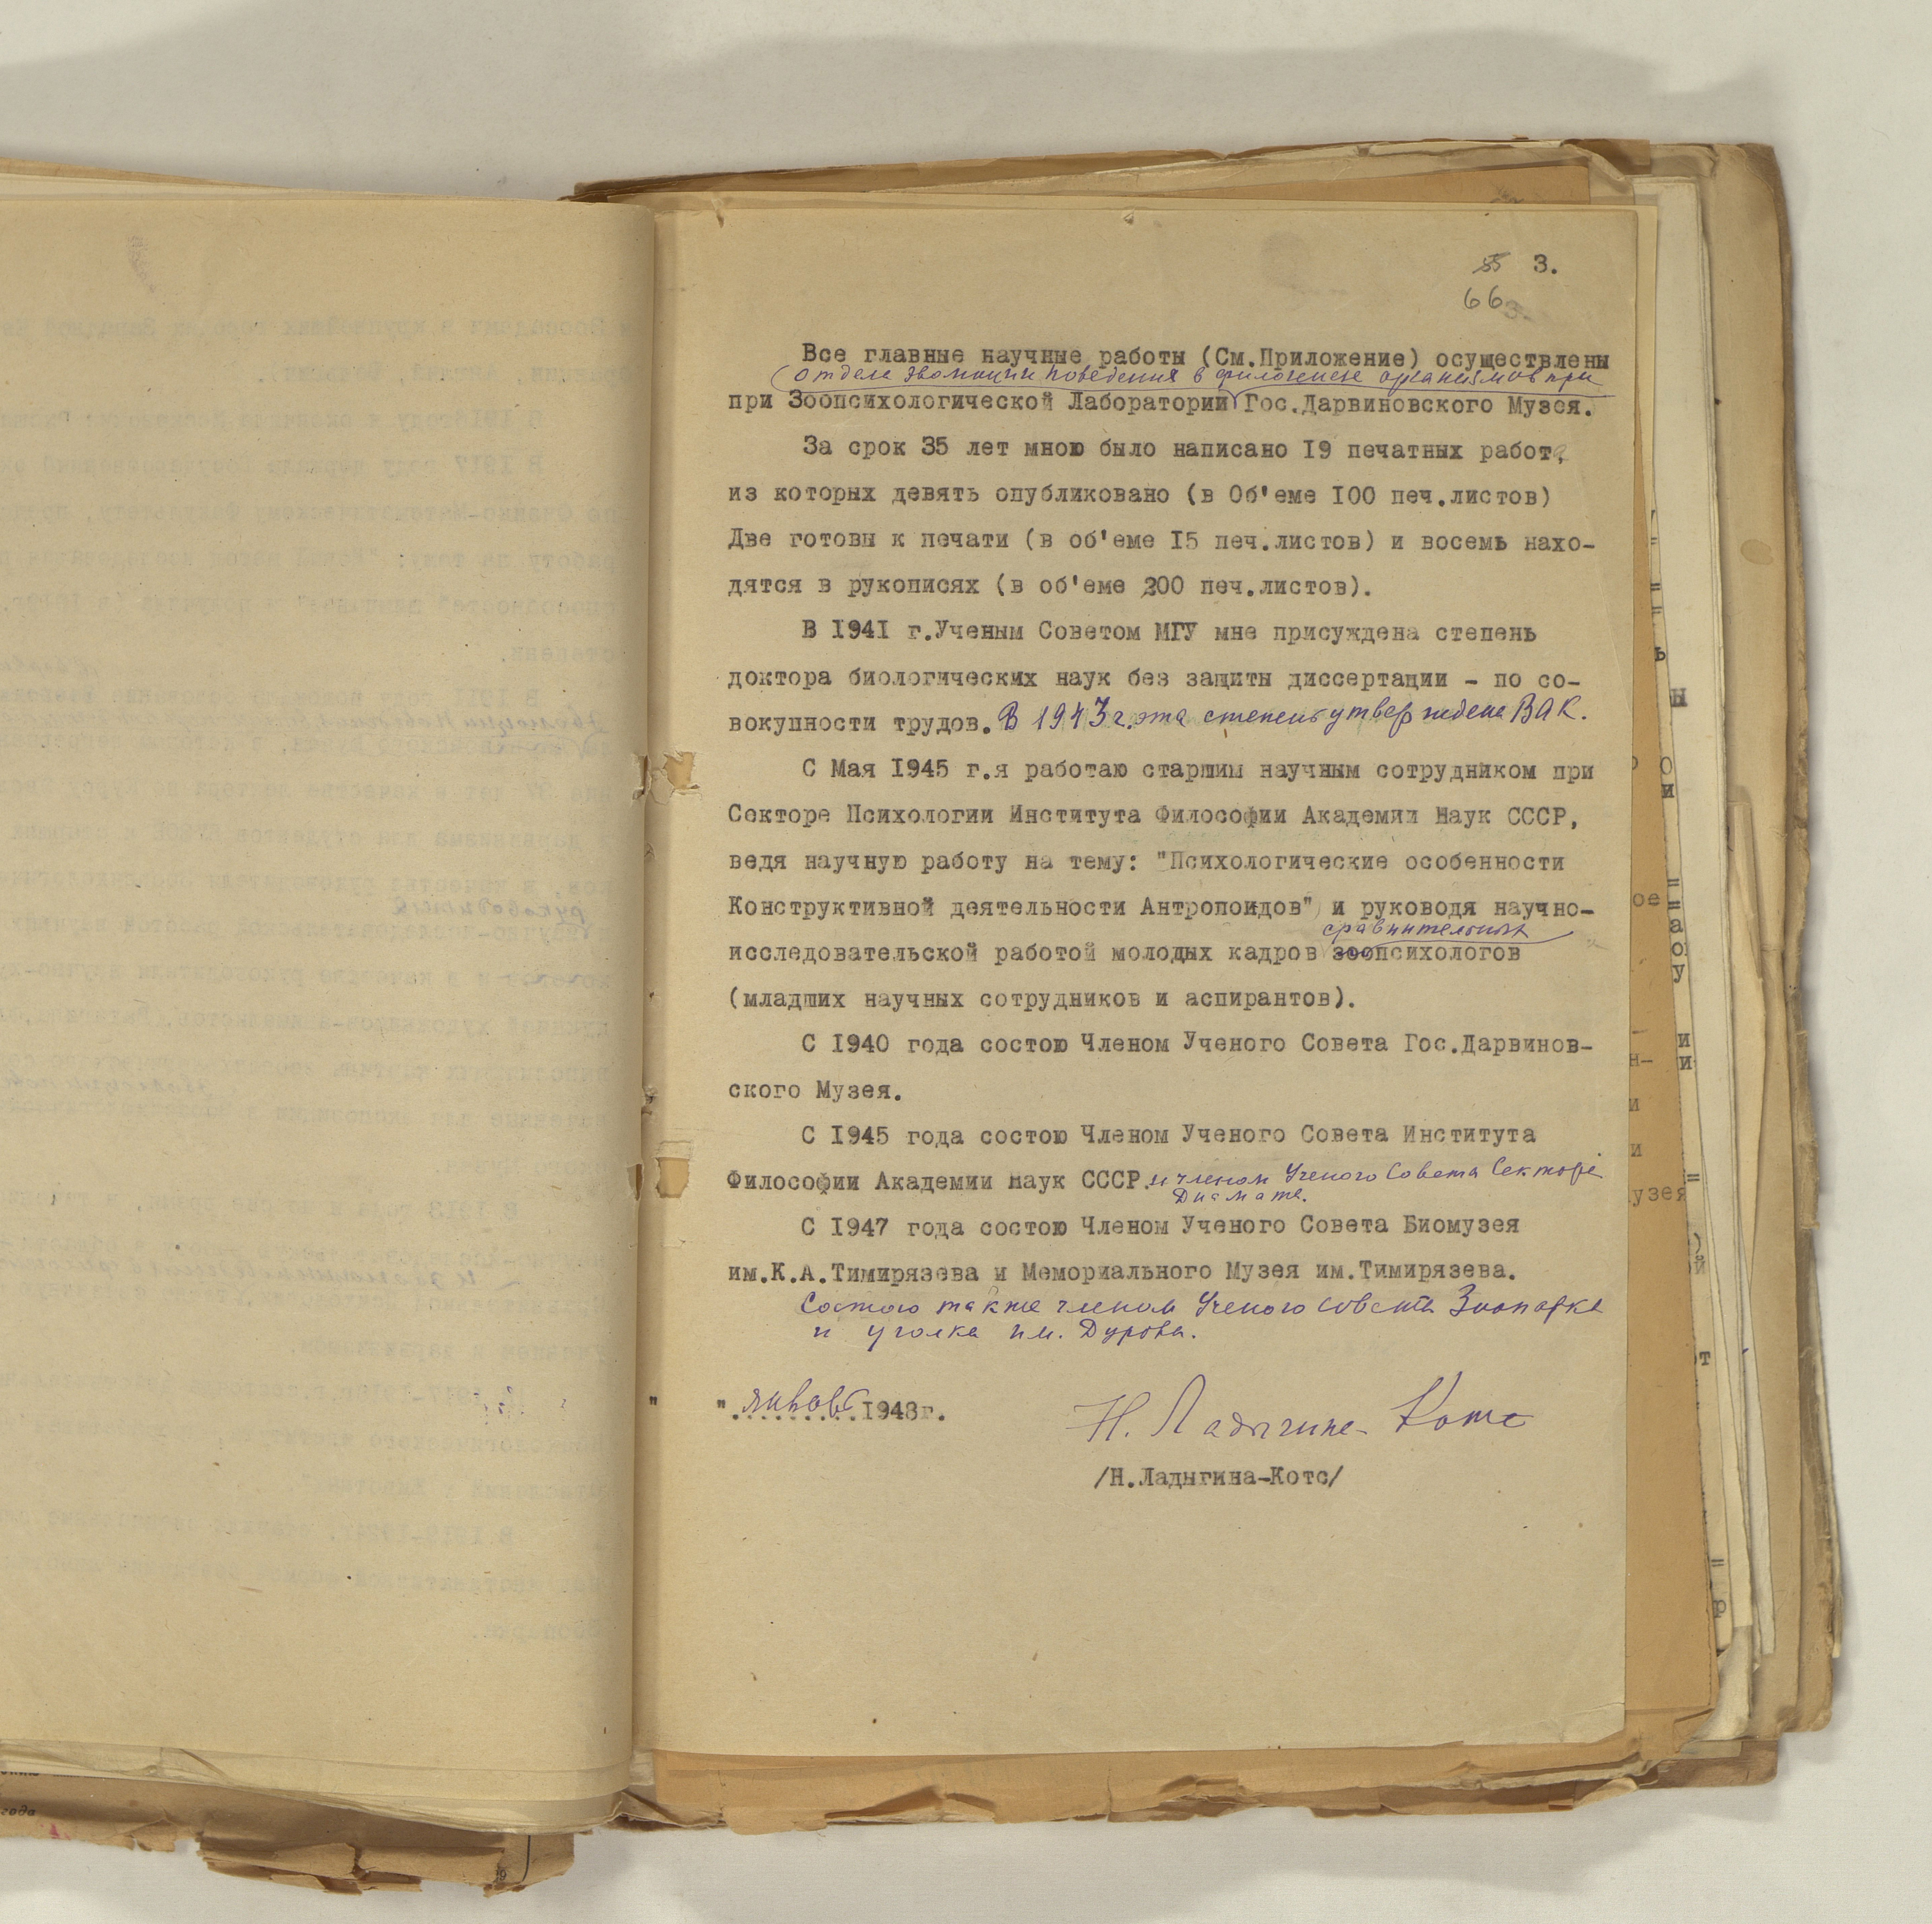 55 3.
66
Все главные научные работы (См.Приложение) осуществлены
отдела эволюции поведения в филогенезе организмов при
при Зоопсихологической Лаборатории Гос.Дарвиновского Музея.
За срок 35 лет мною было написано 19 печатных работ,
из которых девять опубликовано (в Об'еме 100 печ.листов)
Две готовы к печати (в об'еме 15 печ.листов) и восемь нахо-
дятся в рукописях (в об'еме 200 печ.листов).
В 1941 г.Ученым Советом МГУ мне присуждена степень
доктора биологических наук без защиты диссертации - по со-
вокупности трудов. В 1943 г. эта степень утверждена ВАК.
С Мая 1945 г.я работаю старшим научным сотрудником при
Секторе Психологии Института Философии Академии Наук СССР,
ведя научную работу на тему: "Психологические особенности
Конструктивной деятельности Антропоидов" и руководя научно-
сравнительных
исследовательской работой молодых кадров зоопсихологов
(младших научных сотрудников и аспирантов).
С 1940 года состою Членом Ученого Совета Гос.Дарвинов-
ского Музея.
С 1945 года состою Членом Ученого Совета Института
Философии Академии Наук СССР. и членом Ученого Совета Сектора
Диамата.
С 1947 года состою Членом Ученого Совета Биомузея
им.К.А.Тимирязева и Мемориального Музея им.Тимирязева.
Состою также членом Ученого совета Зоопарка
и уголка им. Дурова.
" ".январь.1948г.
Н. Ладыгина-Котс
/Н.Ладыгина-Котс/